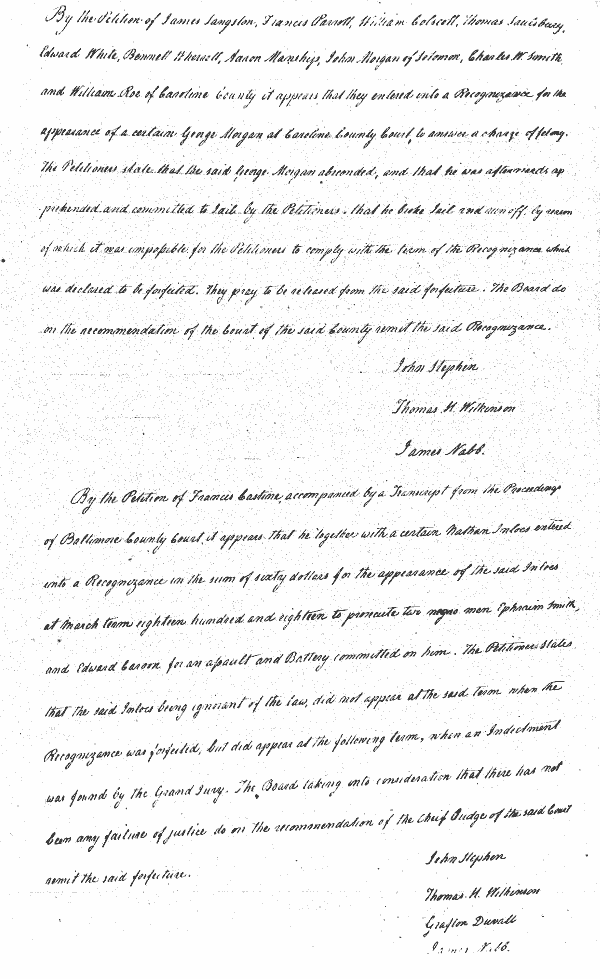 By the Petition of James Sangston, Francis Parrott, William Colscott, Thomas Saulsbury,
Edward White, Bennett Wherrett, Aaron Manship, John Morgan of Solomon, Charles W. Smith,
and William Roe of Caroline County it appears that they entered into a Recognizance for the
appearance of a certain George Morgan at Caroline County Court, to answer a charge of felony.
The Petitioners state that the said George Morgan absconded, and that he was afterwards ap
prehended and committed to Jail by the Petitioners, that he broke Jail and run off, by reason
of which it was impossible for the Petitioners to comply with the term of the Recognizance which
was declared to be forfeited. They pray to be released from the said forfeiture. The Board do
on the recommendation of the Court of the said County remit the said Recognizance.
John Stephen
Thomas H. Wilkinson
James Nabb.
By the Petition of Francis Eastine, accompanied by a Transcript from the Proceedings
of Baltimore County Court, it appears that he together with a certain Nathan Inloes entered
into a Recognizance in the sum of sixty dollars for the appearance of the said Inloes
at March term eighteen hundred and eighteen to prosecute two negro men Ephraim Smith,
and Edward Caroon for an assault and Battery committed on him. The Petitioner states
that the said Inloes being ignorant of the law, did not appear at the said term when the
Recognizance was forfeited, but did appear at the following term, when an Indictment
was found by the Grand Jury. The Board taking into consideration that there has not
been any failure of justice do on the recommendation of the Cheif Judge of the said Court
remit the said forfeiture.
John Stephen
Thomas H. Wilkinson
Grafton Duvall
James Nabb.